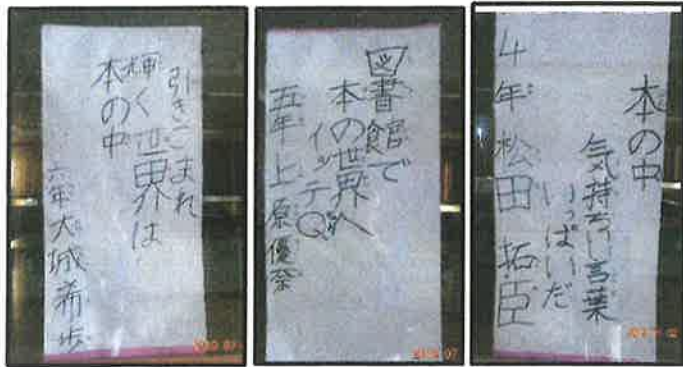 引きこまれ
輝く世界は
本の中
六年大城希歩
図書館で
本の世界へ
イッテQ
五年上原優奈
本の中
気持ちいい言葉
いっぱいだ
4年松田拓臣